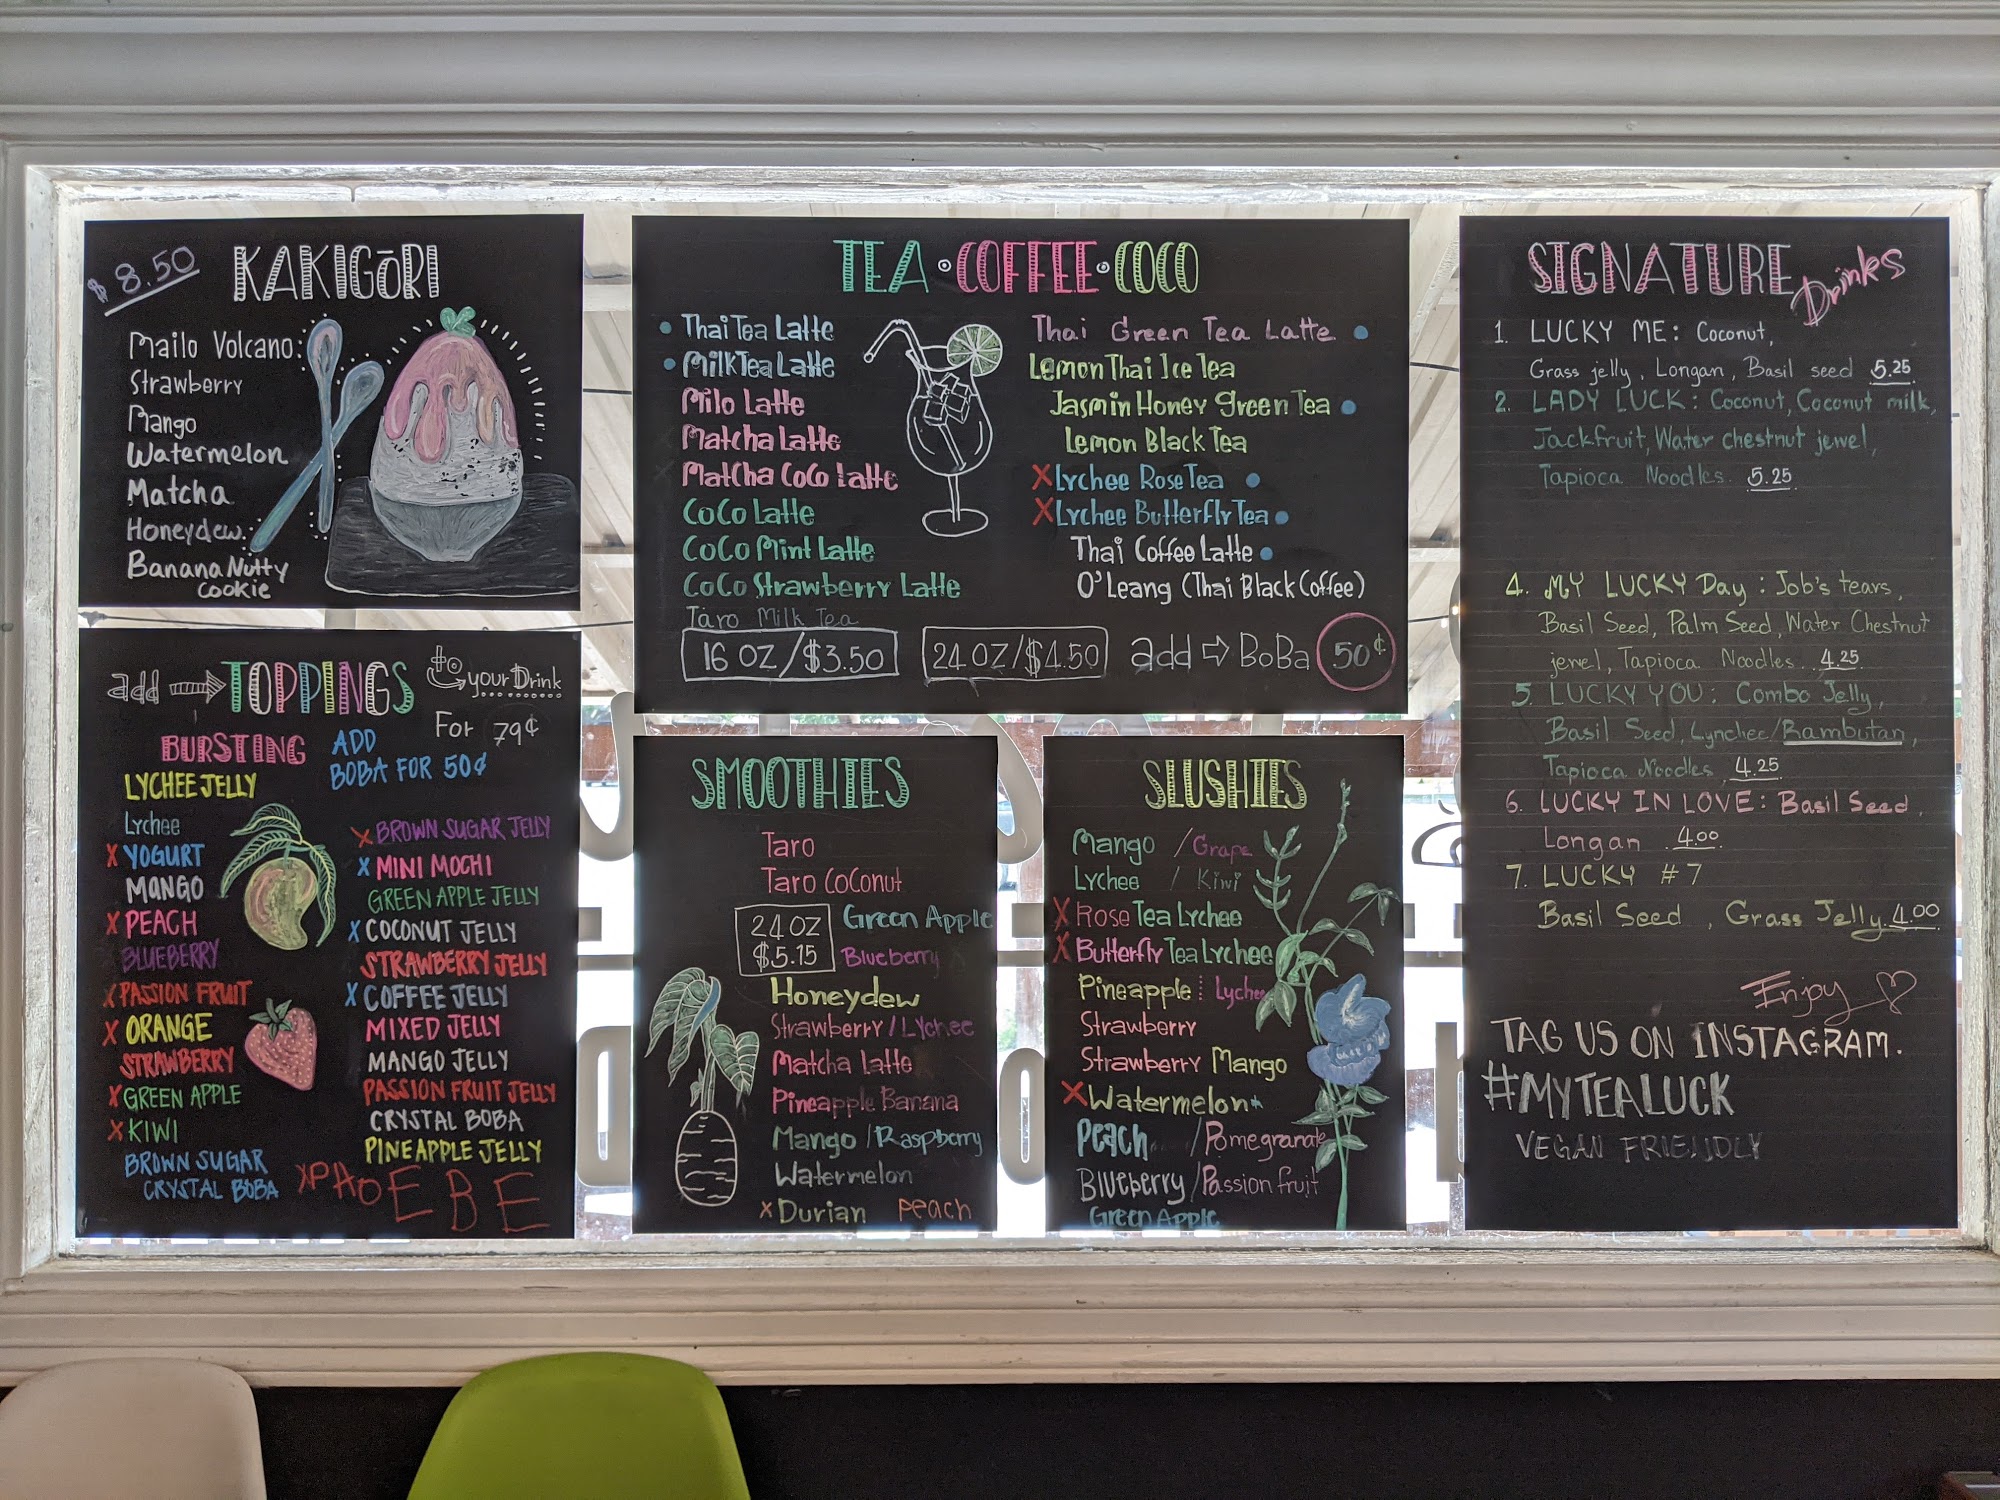 $8.50
KAKIGōRI
Mailo Volcano:
Strawberry
Mango
Watermelon
Matcha
Honeydew
Banana Nutty
Cookie
add TOPPINGS to your Drink
For 79¢
BURSTING
ADD
BOBA FOR 50¢
LYCHEE JELLY
Lychee
X YOGURT
MANGO
X PEACH
BLUEBERRY
X PASSION FRUIT
X ORANGE
STRAWBERRY
X GREEN APPLE
X KIWI
BROWN SUGAR
CRYSTAL BOBA
X BROWN SUGAR JELLY
X MINI MOCHI
GREEN APPLE JELLY
X COCONUT JELLY
STRAWBERRY JELLY
X COFFEE JELLY
MIXED JELLY
MANGO JELLY
PASSION FRUIT JELLY
CRYSTAL BOBA
PINEAPPLE JELLY
TEA • COFFEE • COCO
• Thai Tea Latte
• Milk Tea Latte
Milo Latte
Matcha Latte
Matcha CoCo Latte
CoCo Latte
CoCo Mint Latte
CoCo Strawberry Latte
Taro Milk Tea
Thai Green Tea Latte •
Lemon Thai Ice Tea
Jasmin Honey Green Tea •
Lemon Black Tea
X Lychee Rose Tea •
X Lychee Butterfly Tea •
Thai Coffee Latte •
O'Leang (Thai Black Coffee)
16 OZ/$3.50
24 OZ/$4.50
add ⇨ BoBa 50¢
SMOOTHIES
Taro
Taro CoConut
24 OZ
$5.15
Green Apple
Blueberry
Honeydew
Strawberry/Lychee
Matcha Latte
Pineapple Banana
Mango/Raspberry
Watermelon
x Durian Peach
SLUSHIES
Mango / Grape
Lychee / Kiwi
X Rose Tea Lychee
X Butterfly Tea Lychee
Pineapple Lychee
Strawberry
Strawberry Mango
X Watermelon
Peach / Pomegranate
Blueberry/Passion fruit
Green Apple
SIGNATURE Drinks
1. LUCKY ME: Coconut,
Grass jelly, Longan, Basil seed 5.25
2. LADY LUCK: Coconut, Coconut milk,
Jackfruit, Water chestnut jewel,
Tapioca Noodles. 5.25
4. MY LUCKY Day: Job's tears,
Basil Seed, Palm Seed, Water Chestnut
jewel, Tapioca Noodles. 4.25
5. LUCKY YOU: Combo Jelly,
Basil Seed, Lynchee/Rambutan,
Tapioca Noodles 4.25
6. LUCKY IN LOVE: Basil Seed,
Longan 4.00
7. LUCKY #7
Basil Seed, Grass Jelly. 4.00
Enjoy
TAG US ON INSTAGRAM.
#MYTEALUCK
VEGAN FRIENDLY